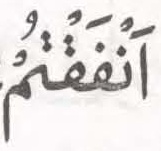 اَنْفَقْتُمْ